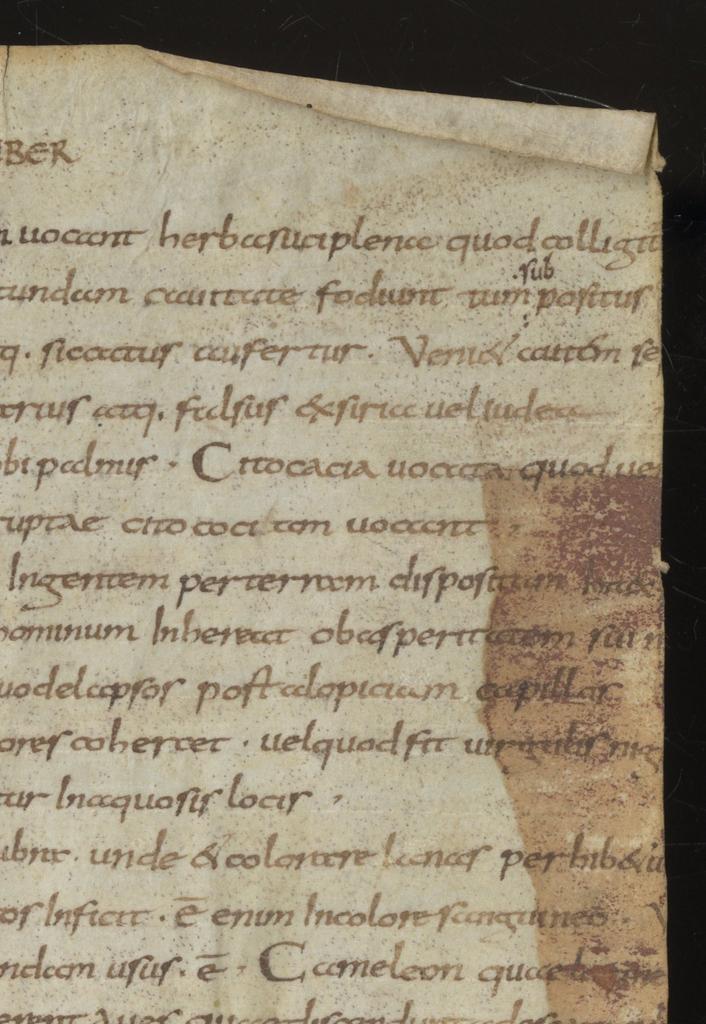 BER
uocant herbasuciplena quod colligit
cundam cauitate fodiunt tum sub positus
tq. siccatus aufertur. Veni& autem se
trius atq. falsus &siria uel iudea
obi palmis. Citocacia uocata quod ue
ruptae cito coci tam uocant.
Ingentem per terram dispositam
hominum Inhereat ob asperitatem sui n
uodelapsos post alopiciam capillos
ores cohercet. uelquod fit uirgulis nig
tur Inaquosis locis
ubra. unde &colorare lanas perhib&u
tos Inficit. ē enim Incolore sanguineo.
ndam usus. ē. Cameleon quae
erent Aues